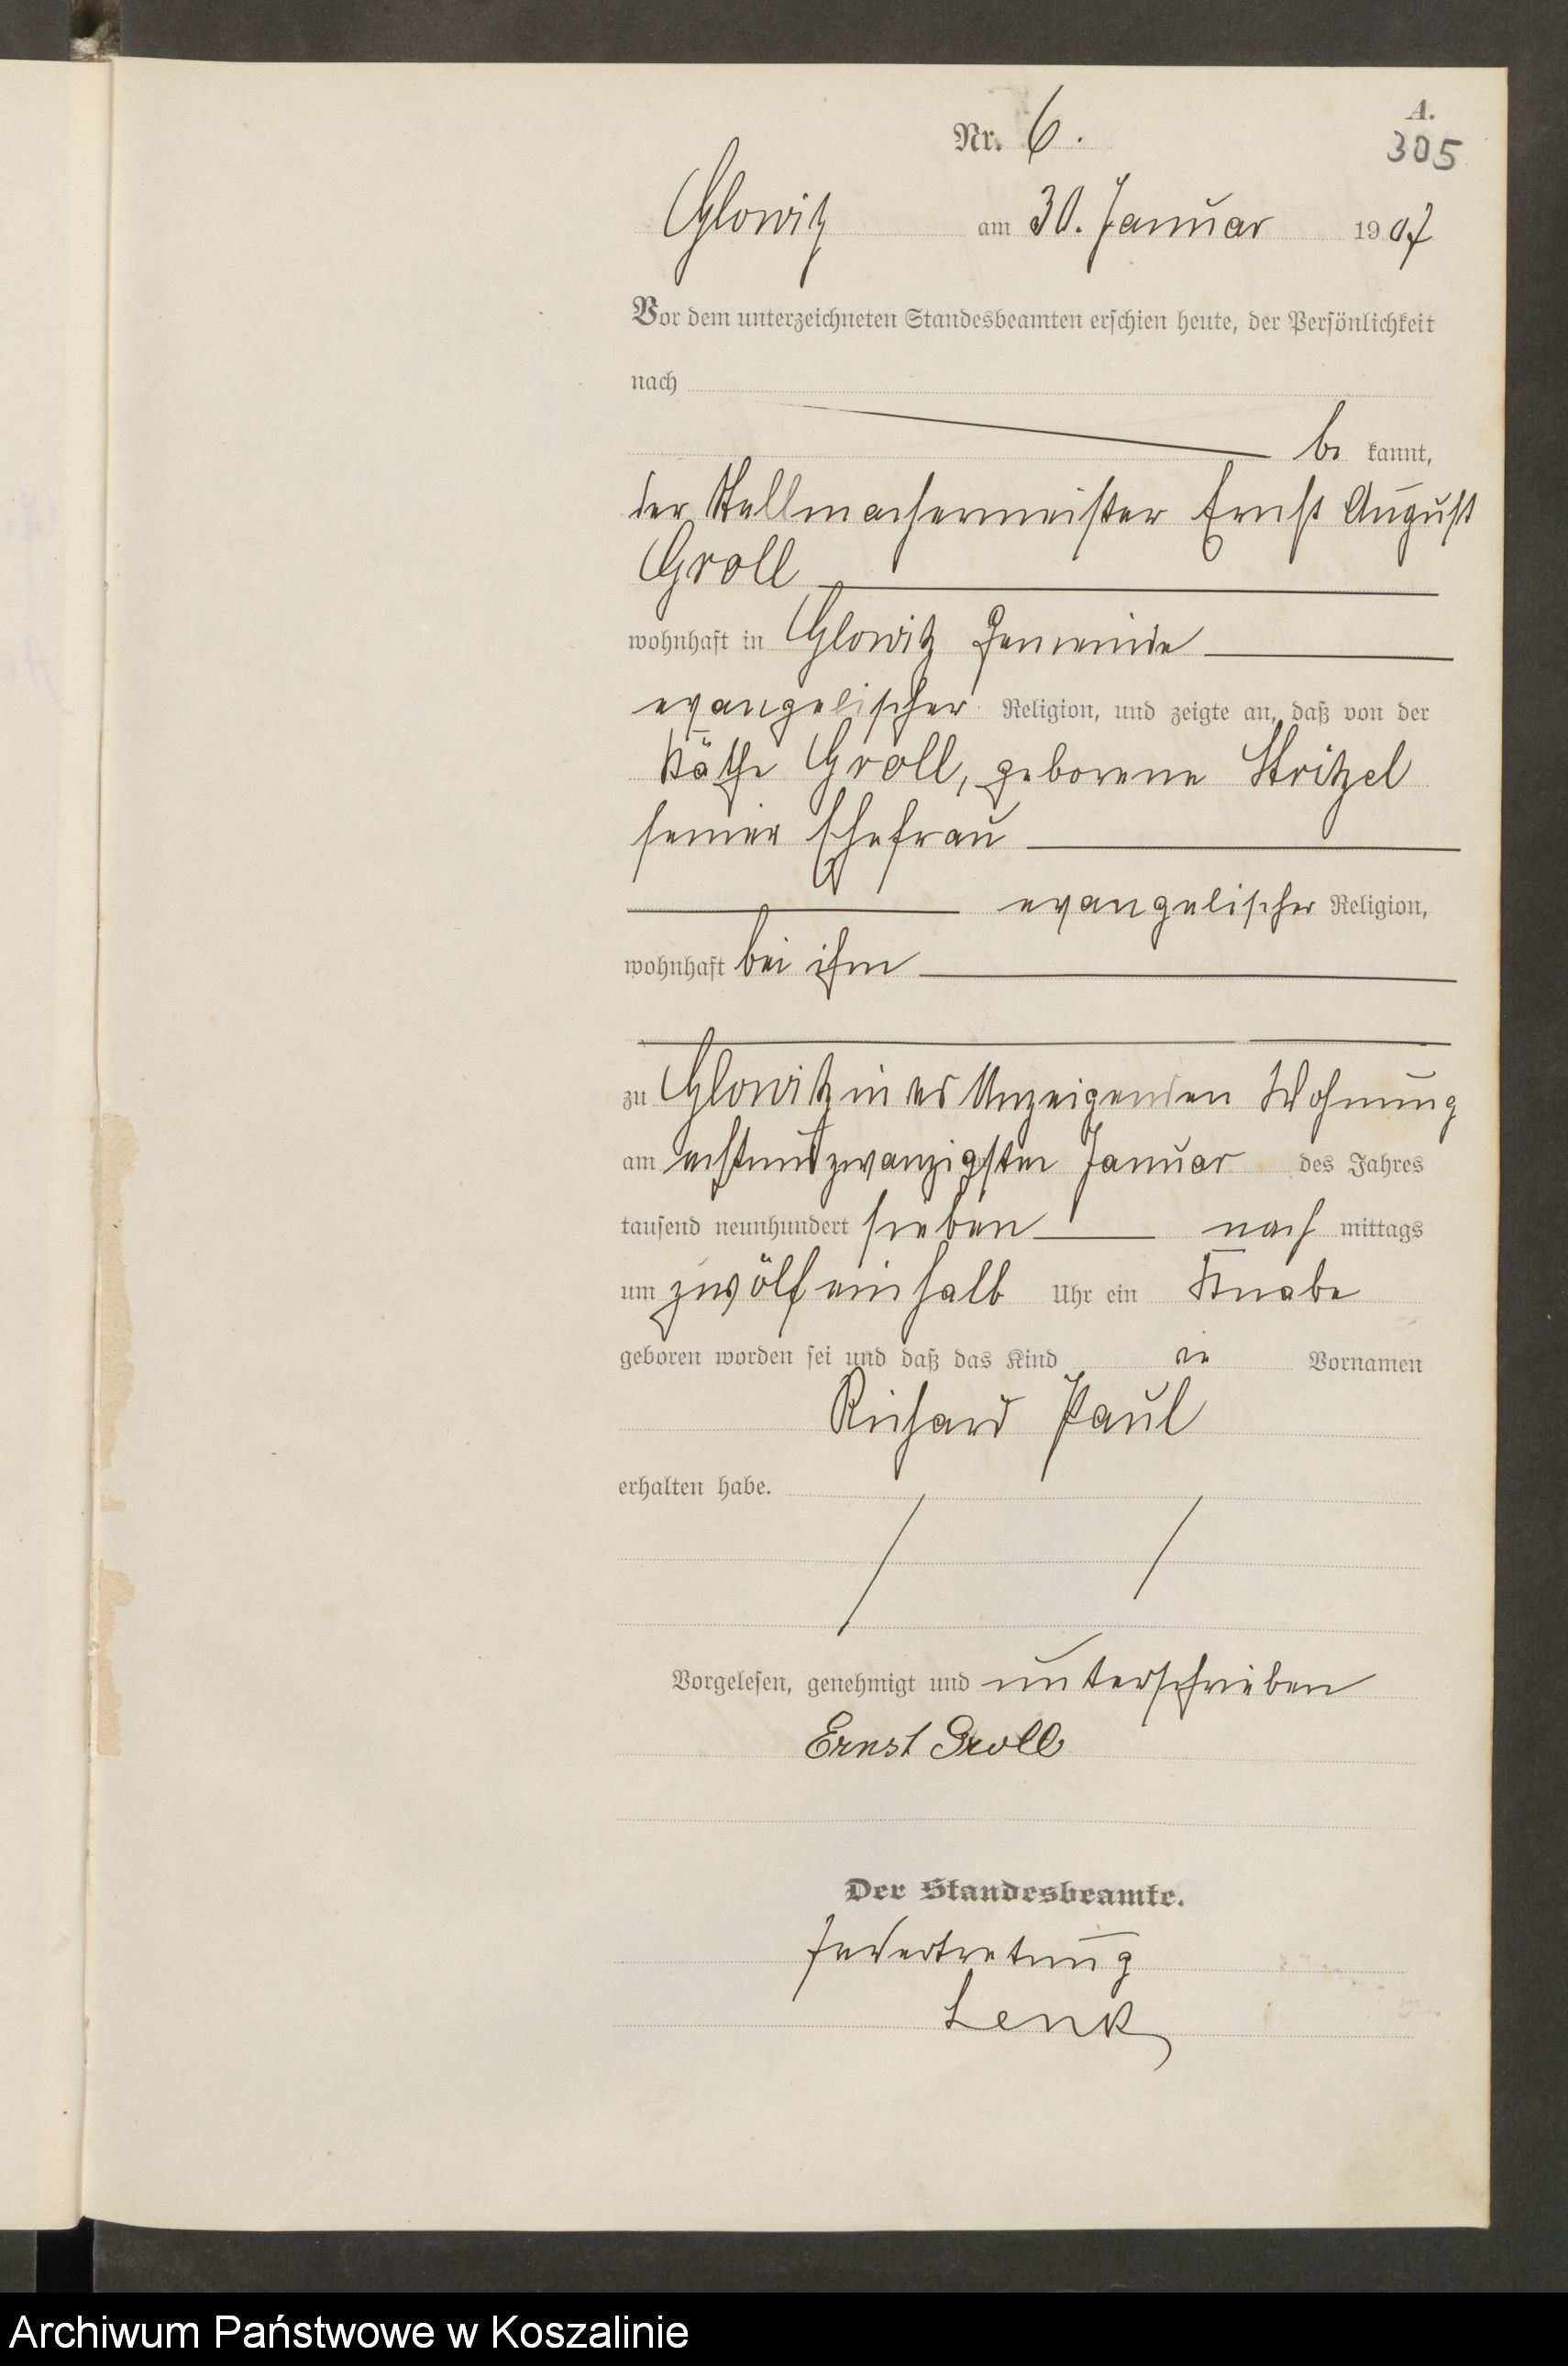 A.
Nr. 6.
305
Glowitz am 30. Januar 1907
Vor dem unterzeichneten Standesbeamten erschien heute, der Persönlichkeit
nach
be kannt,
der Stellmachermeister Ernst August
Groll
wohnhaft in Glowitz Gemeinde
evangelischer Religion, und zeigte an, daß von der
Käthe Groll, geborene Stritzel
seiner Ehefrau
evangelischer Religion,
wohnhaft bei ihm
zu Glowitz in des Anzeigenden Wohnung
am achtundzwanzigsten Januar des Jahres
tausend neunhundert sieben nach mittags
um zwölfeinhalb Uhr ein Knabe
geboren worden sei und daß das Kind die Vornamen
Richard Paul
erhalten habe.
Vorgelesen, genehmigt und unterschrieben
Ernst Groll
Der Standesbeamte.
In Vertretung
Lenk
Archiwum Państwowe w Koszalinie